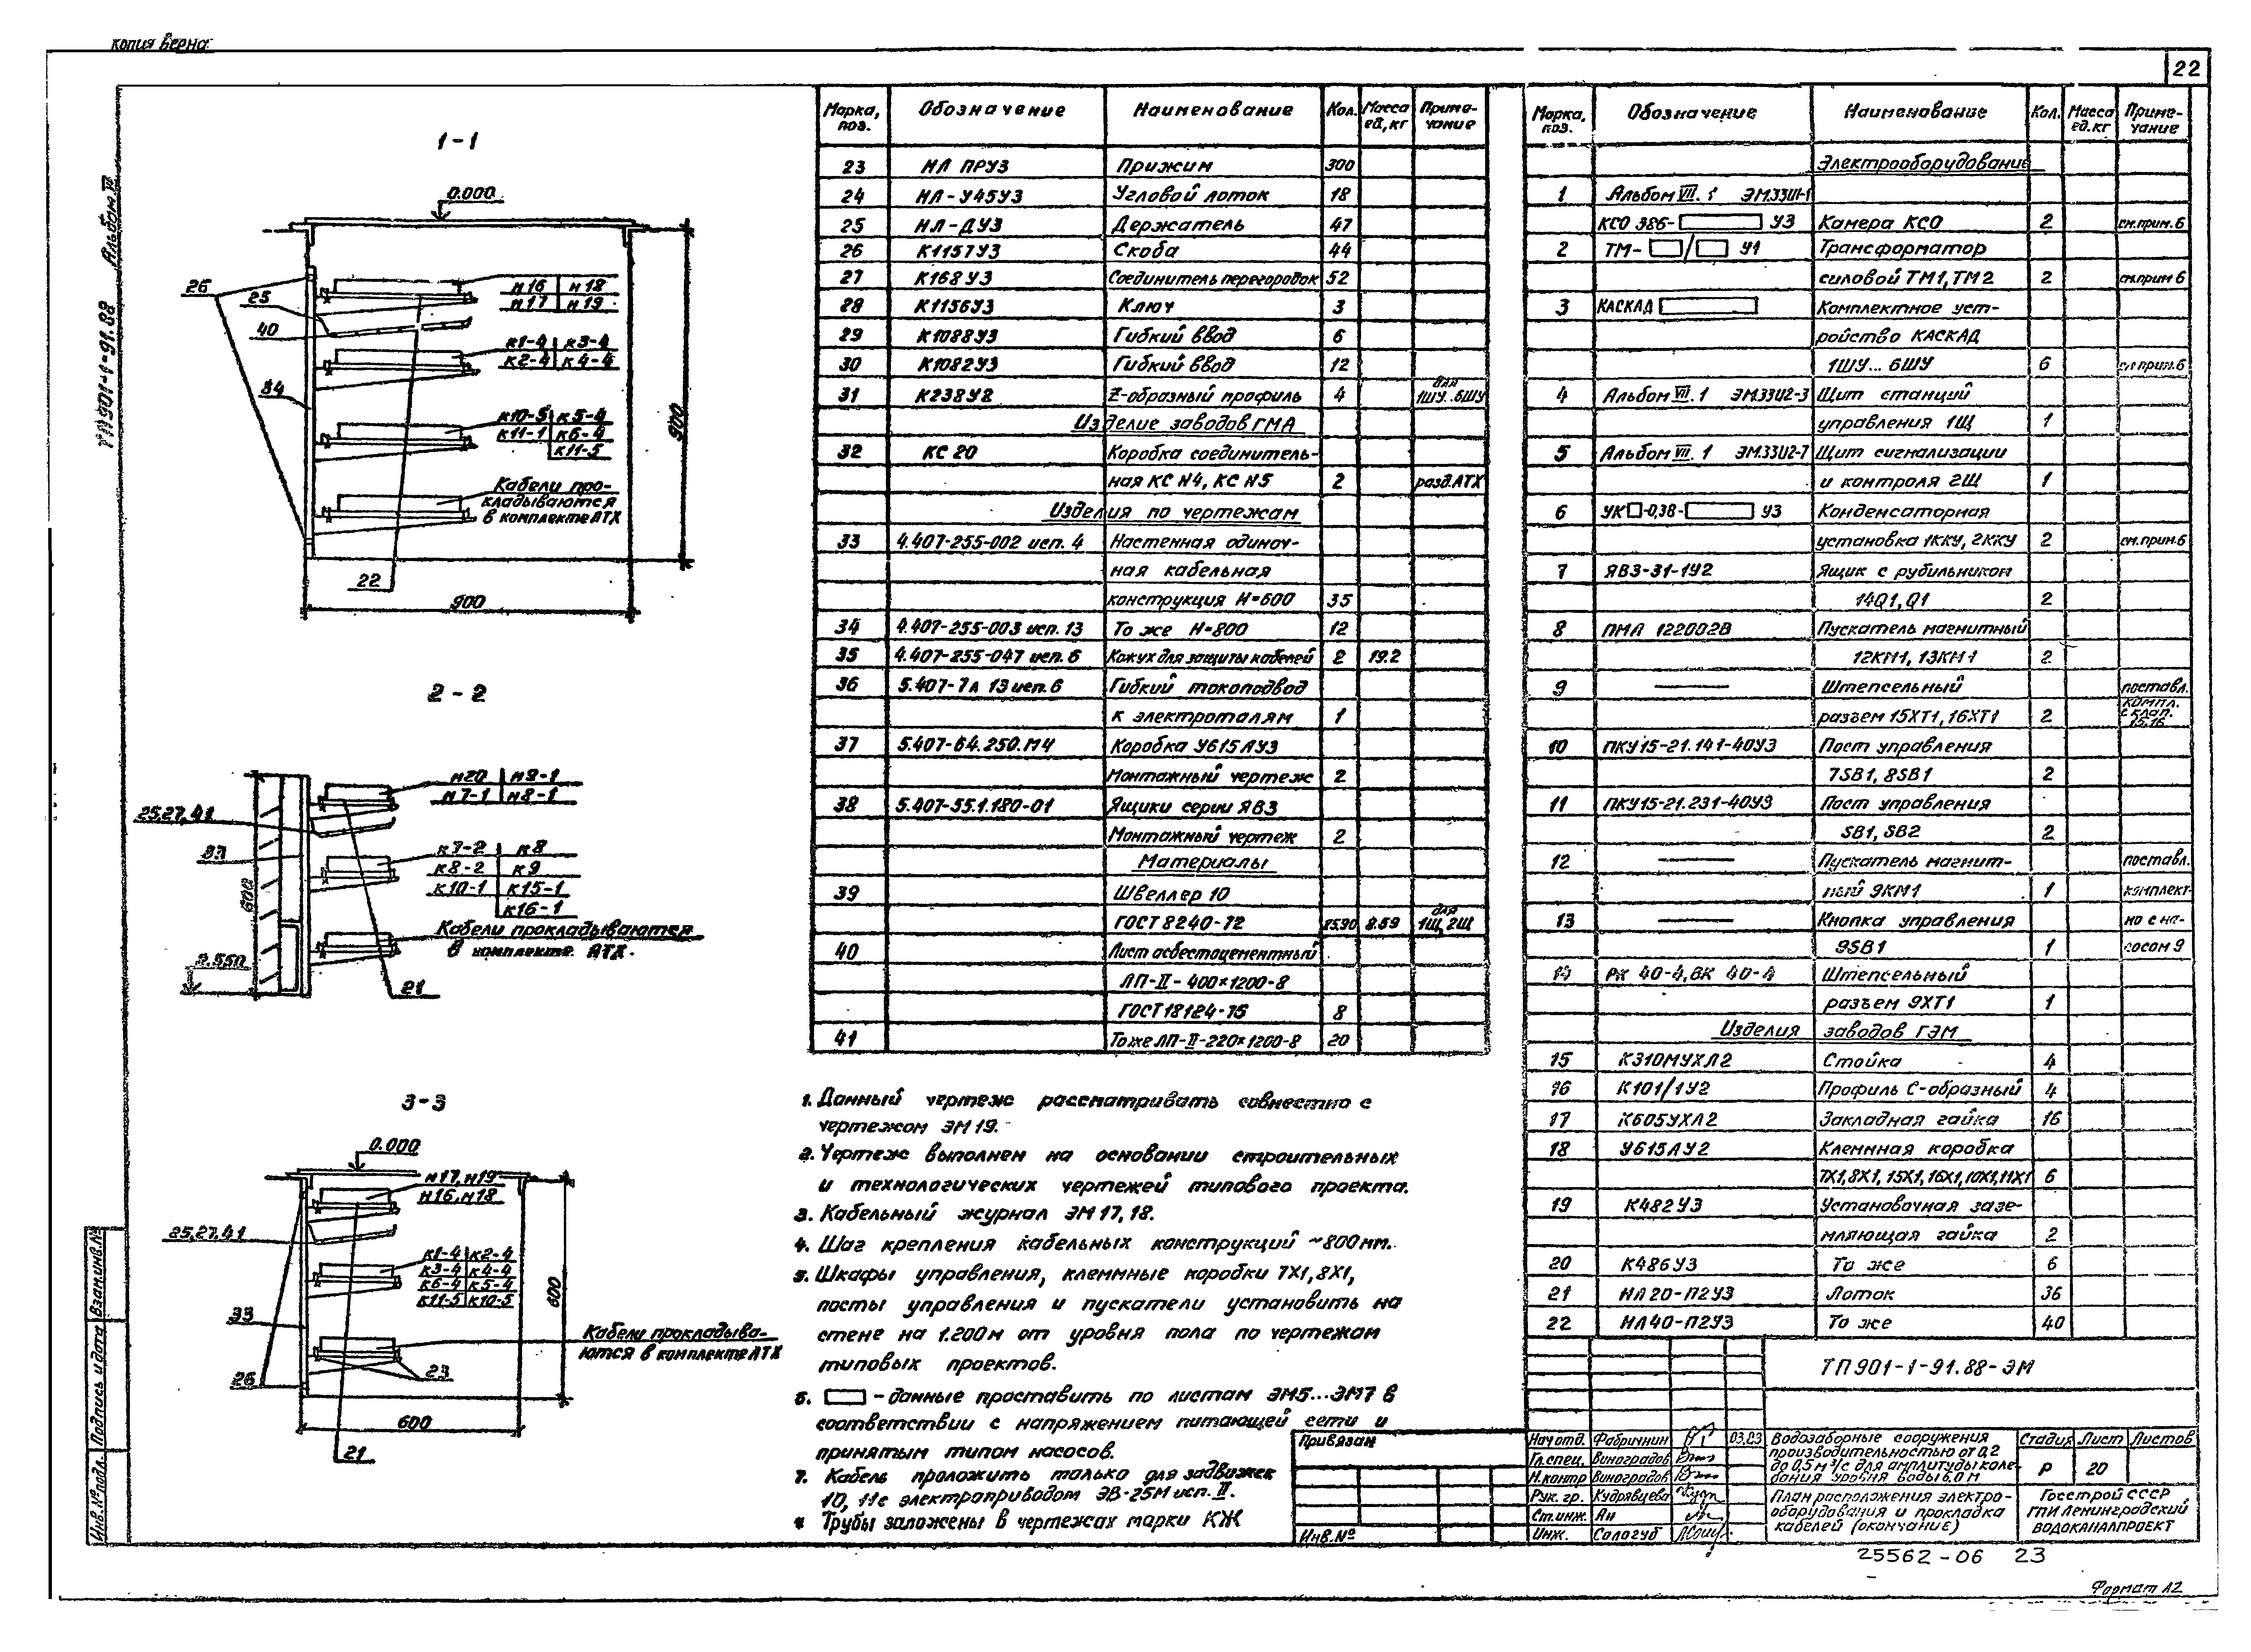 копия верна
22
ТП 901-1-91.88 Альбом VI
1-1
0.000
26
25
40
34
м16 м18
м17 м19
к1-4 к3-4
к2-4 к4-4
к10-5 к5-4
к11-1 к6-4
к11-5
Кабели про-
кладываются
в комплекте АТХ
22
900
900
2-2
м20 м9-1
м7-1 м8-1
25,27,41
33
600
к7-2 к8
к8-2 к9
к10-1 к15-1
к16-1
Кабели прокладываются
в комплекте АТХ.
21
3-3
0.000
м17, м19
м16, м18
25,27,41
к1-4 к2-4
к3-4 к4-4
к6-4 к5-4
к11-5 к10-5
33
Кабели прокладыва-
ются в комплекте АТХ
23
26
600
600
21
Марка, поз. Обозначение Наименование Кол. Масса ед, кг Приме-чание
23 НЛ ПРУ3 Прижим 300
24 НЛ-У45У3 Угловой лоток 18
25 НЛ-ДУ3 Держатель 47
26 К1157У3 Скоба 44
27 К168У3 Соединитель перегородок 52
28 К1156У3 Ключ 3
29 К1088У3 Гибкий ввод 6
30 К1082У3 Гибкий ввод 12
31 К238У2 Z-образный профиль 4 для 1ШУ..6ШУ
Изделие заводов ГМА
32 КС 20 Коробка соединитель-
ная КС N4, КС N5 2 разд. АТХ
Изделия по чертежам
33 4.407-255-002 исп. 4 Настенная одиноч-
ная кабельная
конструкция Н=600 35
34 4.407-255-003 исп. 13 То же Н=800 12
35 4.407-255-047 исп. 6 Кожух для защиты кабелей 2 19.2
36 5.407-7л 13 исп. 6 Гибкий токоподвод
к электроталям 1
37 5.407-64.250.М4 Коробка У615АУ3
Монтажный чертеж 2
38 5.407-55.1.180-01 Ящики серии ЯВЗ
Монтажный чертеж 2
Материалы
39 Швеллер 10
ГОСТ 8240-72 8.59 для 1Щ, 2Щ
40 Лист асбестоцементный
ЛП-II-400×1200-8
ГОСТ 18124-75 8
41 То же ЛП-II-220×1200-8 20
1. Данный чертеж рассматривать совместно с
чертежом ЭМ 19.
2. Чертеж выполнен на основании строительных
и технологических чертежей типового проекта.
3. Кабельный журнал ЭМ 17, 18.
4. Шаг крепления кабельных конструкций ~800мм.
5. Шкафы управления, клеммные коробки 7Х1, 8Х1,
посты управления и пускатели установить на
стене на 1.200м от уровня пола по чертежам
типовых проектов.
6. – данные проставить по листам ЭМ5...ЭМ7 в
соответствии с напряжением питающей сети и
принятым типом насосов.
7. Кабель проложить только для задвижек
10, 11 с электроприводом ЭВ-25М исп. II.
Трубы заложены в чертежах марки КЖ
Марка, поз. Обозначение Наименование Кол. Масса ед.кг Приме-чание
Электрооборудование
1 Альбом VII. 1 ЭМ.33И1-1
КСО 386- У3 Камера КСО 2 см.прим. 6
2 ТМ- / У1 Трансформатор
силовой ТМ1, ТМ2 2 см.прим 6
3 КАСКАД Комплектное уст-
ройство КАСКАД
1ШУ... 6ШУ 6 см прим. 6
4 Альбом VII. 1 ЭМ.33И2-3 Щит станций
управления 1Щ 1
5 Альбом VII. 1 ЭМ.33И2-7 Щит сигнализации
и контроля 2Щ 1
6 УК -0,38- У3 Конденсаторная
установка 1ККУ, 2ККУ 2 см.прим.6
7 ЯВЗ-31-1У2 Ящик с рубильником
14Q1, Q1 2
8 ПМА 122002В Пускатель магнитный
12КМ1, 13КМ1 2
9 Штепсельный поставл.
разъем 15ХТ1, 16ХТ1 2 компл. с клап. 15,16
10 ПКУ15-21.141-40У3 Пост управления
7SB1, 8SB1 2
11 ПКУ15-21.231-40У3 Пост управления
SB1, SB2 2
12 Пускатель магнит- поставл.
ный 9КМ1 1 комплект-
13 Кнопка управления но с на-
9SB1 1 сосом 9
14 РК 40-4, ВК 40-4 Штепсельный
разъем 9ХТ1 1
Изделия заводов ГЭМ
15 К310МУХЛ2 Стойка 4
16 К101/1У2 Профиль С-образный 4
17 К605УХЛ2 Закладная гайка 16
18 У615АУ2 Клеммная коробка
7Х1, 8Х1, 15Х1, 16Х1, 10Х1, 11Х1 6
19 К482У3 Установочная зазе-
мляющая гайка 2
20 К486У3 То же 6
21 НЛ20-П2У3 Лоток 36
22 НЛ40-П2У3 То же 40
ТП 901-1-91.88-ЭМ
Привязан
Инв.№
Нач отд. Фабричнин 03.83
Гл.спец. Виноградов
Н.контр Виноградов
Рук. гр. Кудрявцева
Ст.инж. Ан
Инж. Сологуб
Водозаборные сооружения
производительностью от 0,2
до 0,5 м³/с для амплитуды коле-
бания уровня воды 6,0 м
Стадия Лист Листов
Р 20
План расположения электро-
оборудования и прокладка
кабелей (окончание)
Госстрой СССР
ГПИ Ленинградский
ВОДОКАНАЛПРОЕКТ
25562-06 23
Формат А2
Инв.№подл. Подпись и дата Взам.инв.№